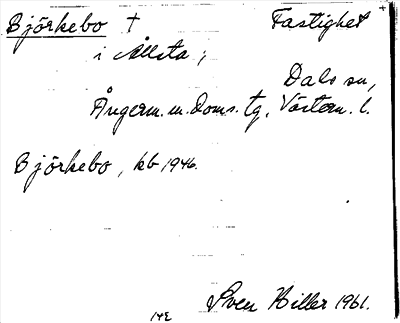 Björkebo † Fastighet
i Allsta;
Dals sn,
Ångerm. m. Doms. tg, Västern. l.
Björkebo, kb 1946.
Sven Hiller 1961.